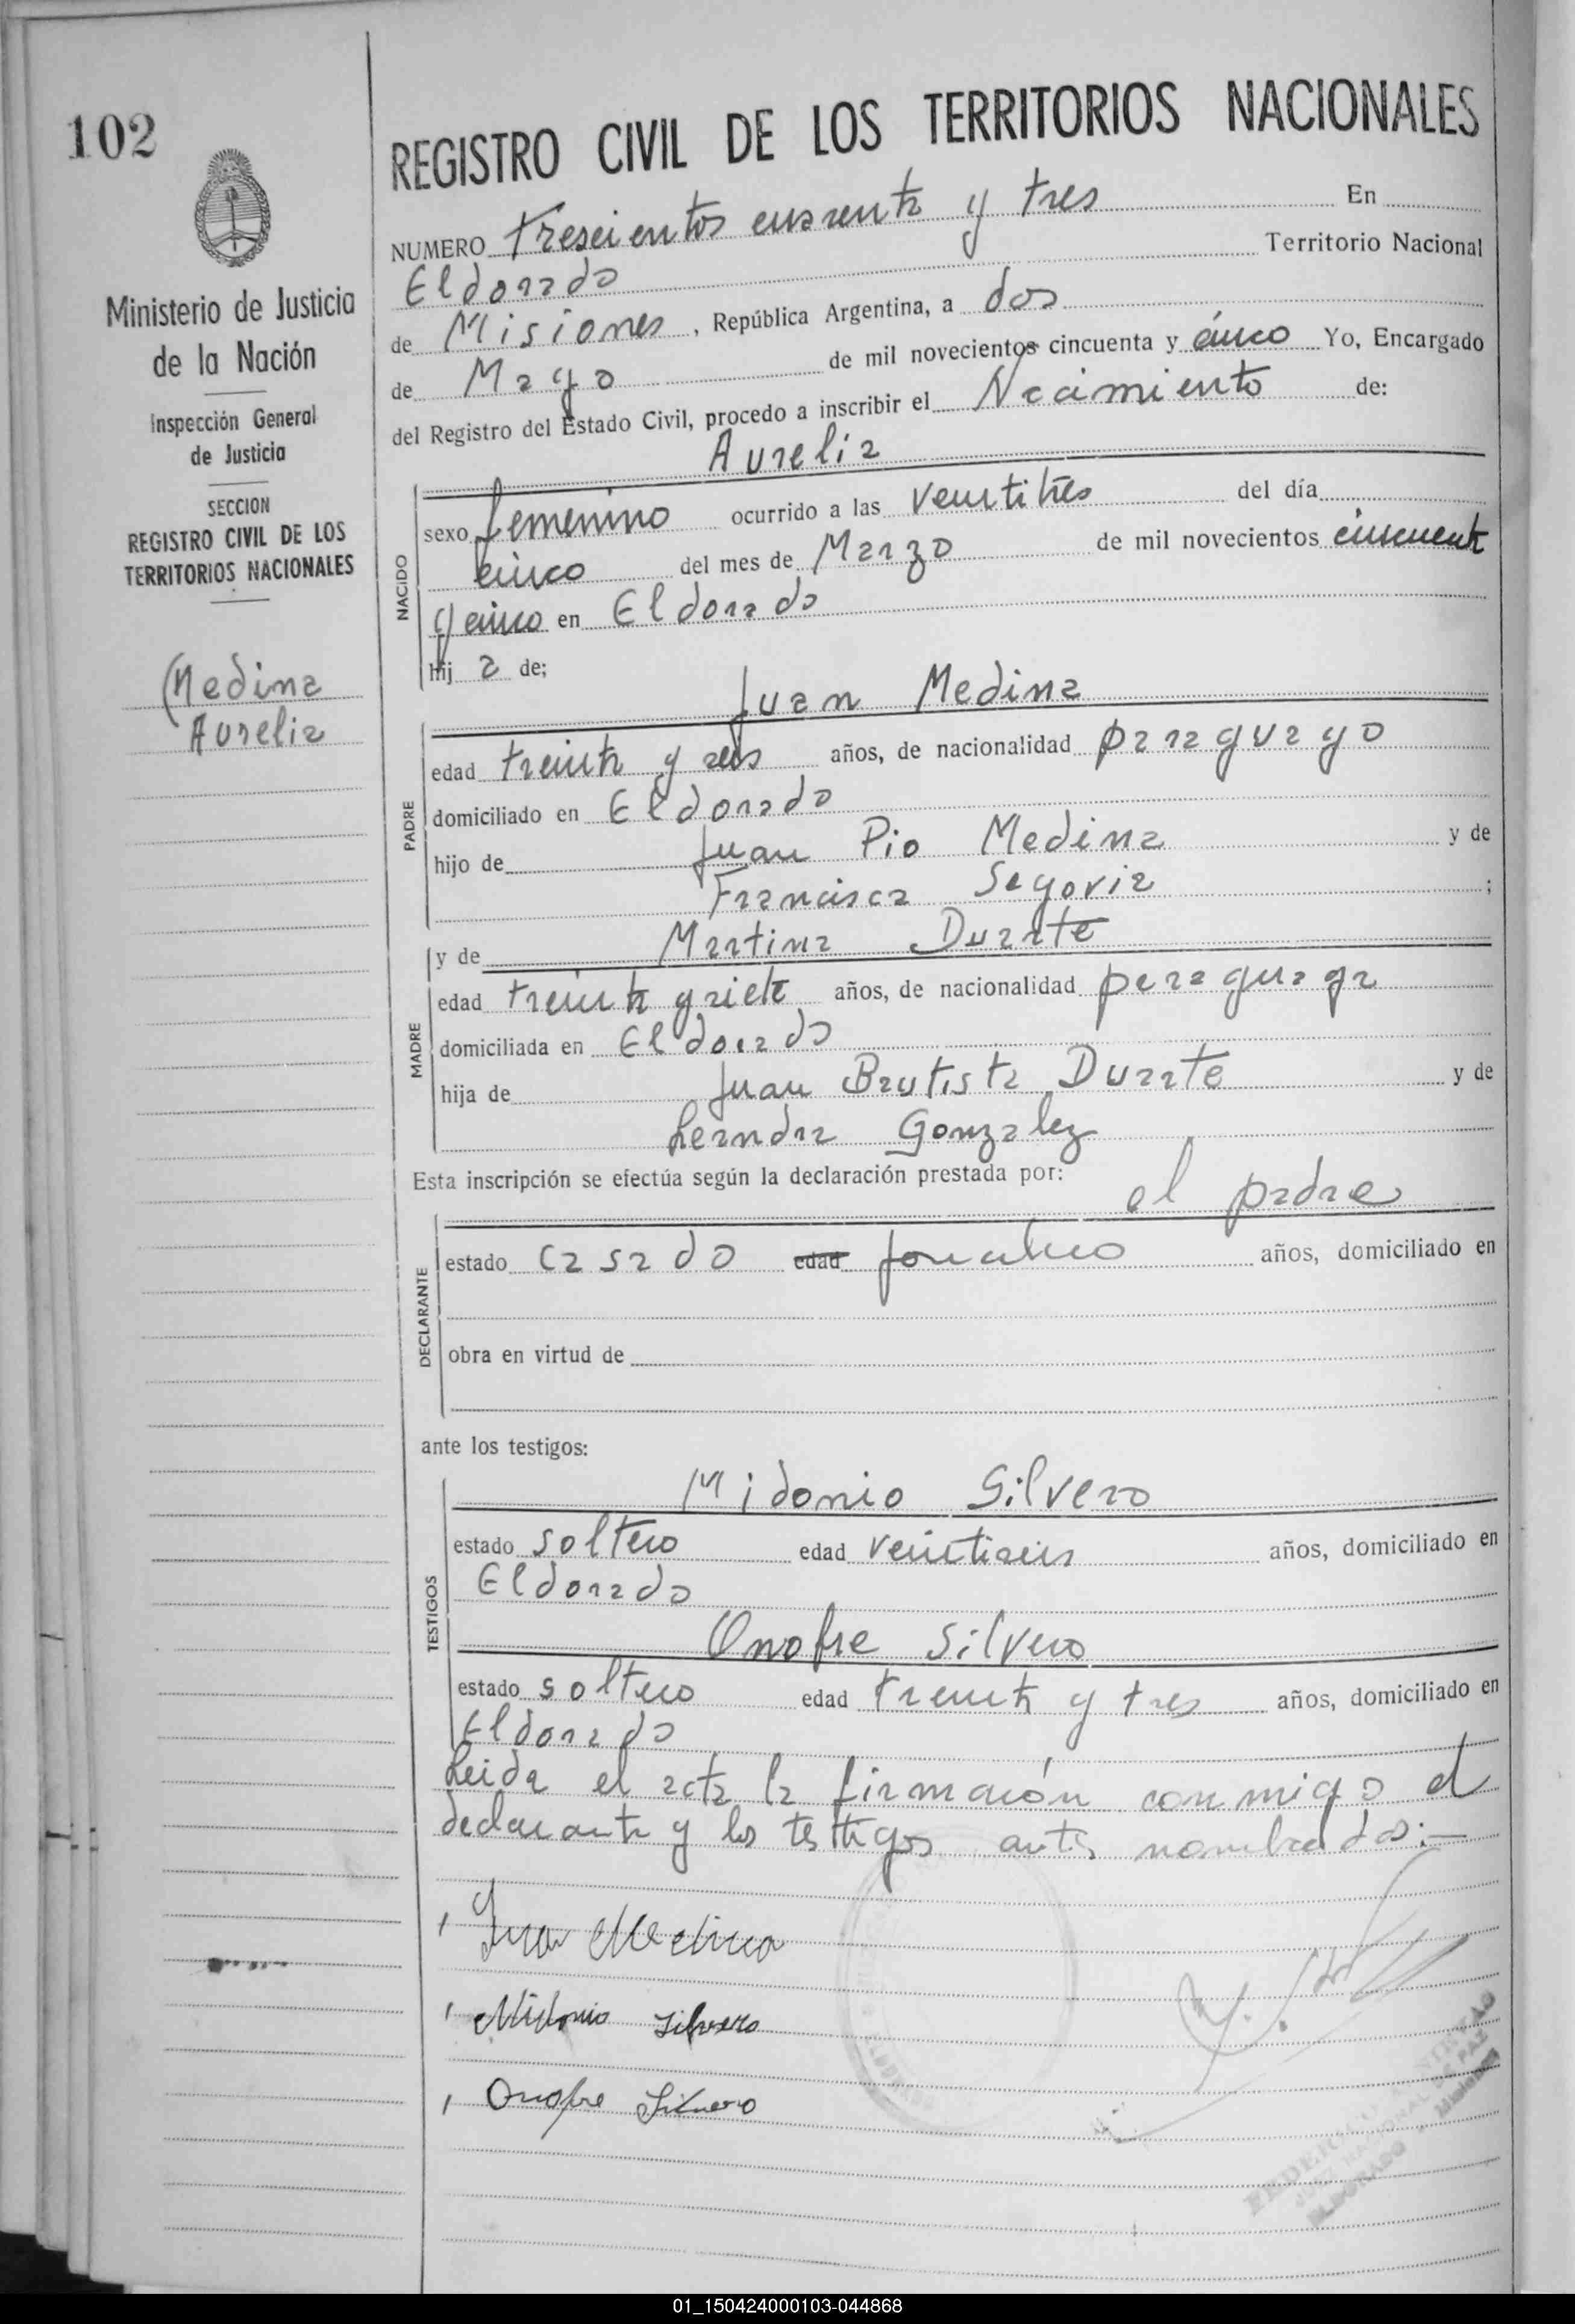 102
Ministerio de Justicia
de la Nación
Inspección General
de Justicia
SECCION
REGISTRO CIVIL DE LOS
TERRITORIOS NACIONALES
Medina
Aurelia
REGISTRO CIVIL DE LOS TERRITORIOS NACIONALES
NUMERO Trescientos cuarenta y tres En
Eldorado Territorio Nacional
de Misiones, República Argentina, a dos
de Mayo de mil novecientos cincuenta y cinco Yo, Encargado
del Registro del Estado Civil, procedo a inscribir el Nacimiento de:
Aurelia
NACIDO
sexo femenino ocurrido a las veintitres del día
cinco del mes de Marzo de mil novecientos cincuenta
y cinco en Eldorado
hija de;
PADRE
Juan Medina
edad treinta y seis años, de nacionalidad paraguayo
domiciliado en Eldorado
hijo de Juan Pio Medina y de
Francisca Segovia ;
MADRE
y de Martina Duarte
edad treinta y siete años, de nacionalidad paraguaya
domiciliada en Eldorado
hija de Juan Bautista Duarte y de
Leandra Gonzalez
Esta inscripción se efectúa según la declaración prestada por:
el padre
DECLARANTE
estado casado edad años, domiciliado en
obra en virtud de
ante los testigos:
TESTIGOS
Midonio Silvero
estado soltero edad veintiseis años, domiciliado en
Eldorado
Onofre Silvero
estado soltero edad treinta y tres años, domiciliado en
Eldorado
Leida el acta la firmación conmigo el
declarante y los testigos antes nombrados:-
Juan Medina
Midonio Silvero
Onofre Silvero
ELDORADO Misiones
01_150424000103-044868